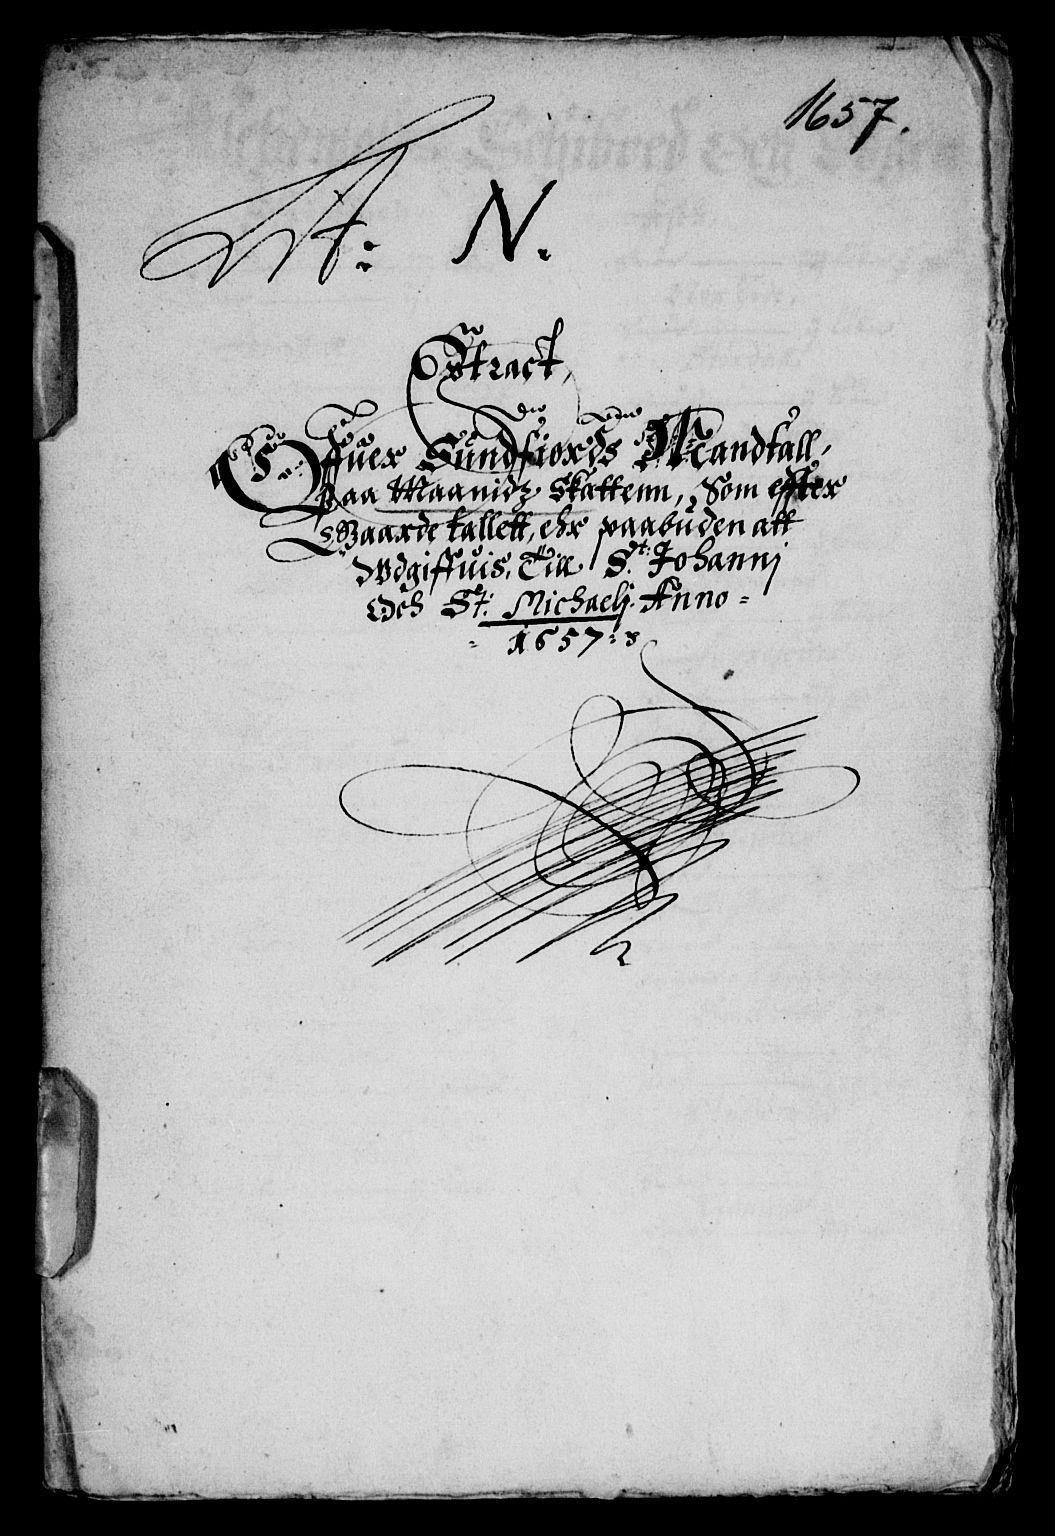 1657.
Lit: N.
Extract,
Offuer Sundfiords Mandtall,
Paa Maanidz Skattenn, Som effter
Gaarde tallett, ehr paabuden att
Wdgiffuis, Till St: Johannj
Och St: Michaelj Anno=
=1657=